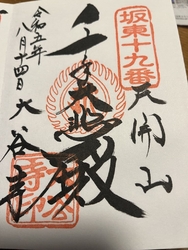 坂東十九番
天開山
千手大悲殿
大谷寺
令和五年
八月十四日